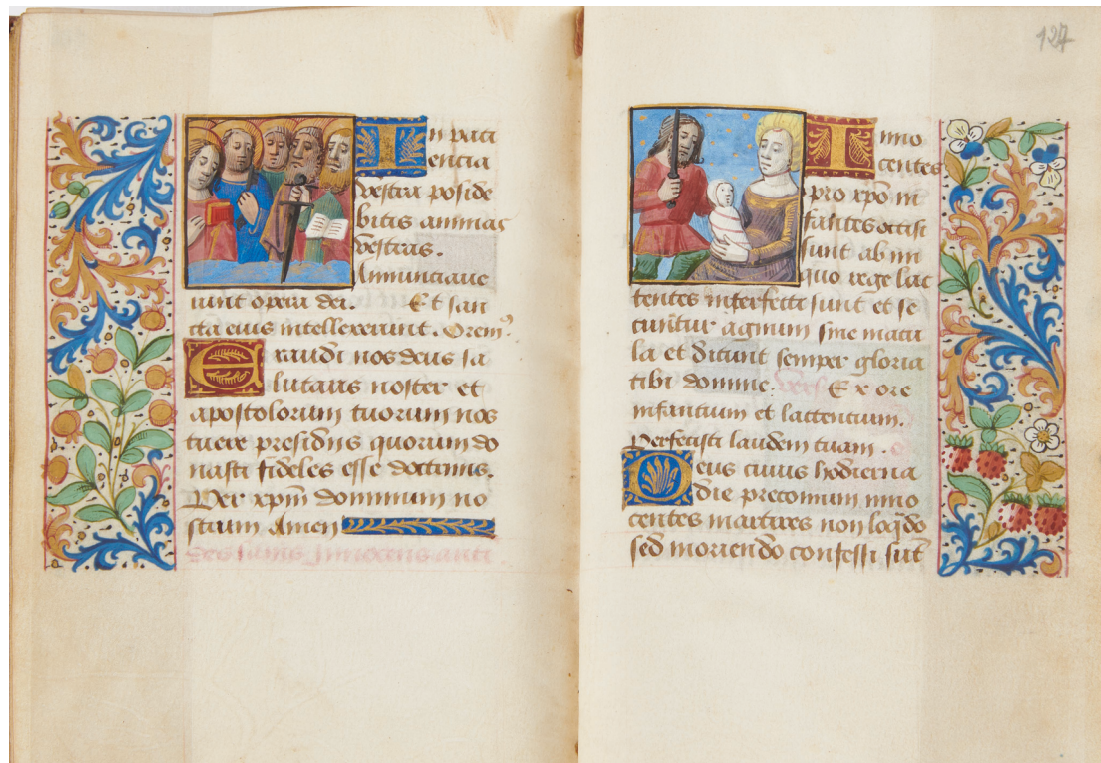 In paci
encia
vestra poside
bitis animas
vestras.
Annunciave
runt opera dei. Et san
cta eius intellexerunt. Orem9
Exaudi nos deus sa
lutaris noster et
apostolorum tuorum nos
tuere presidiis quorum do
nasti fideles esse doctrinis.
Per xpm dominum no
strum Amen
des sains Innocens ante
127
Inno
centes
pro xpo in
fantes occisi
sunt ab ini
quo rege lac
tentes interfecti sunt et se
cuntur agnum sine macu
la et dicunt semper gloria
tibi domine. Vers Ex ore
infantium et lactentium.
Perfecisti laudem tuam.
Deus cuius hodierna
die preconium inno
centes martires non loqdo
sed moriendo confessi sut